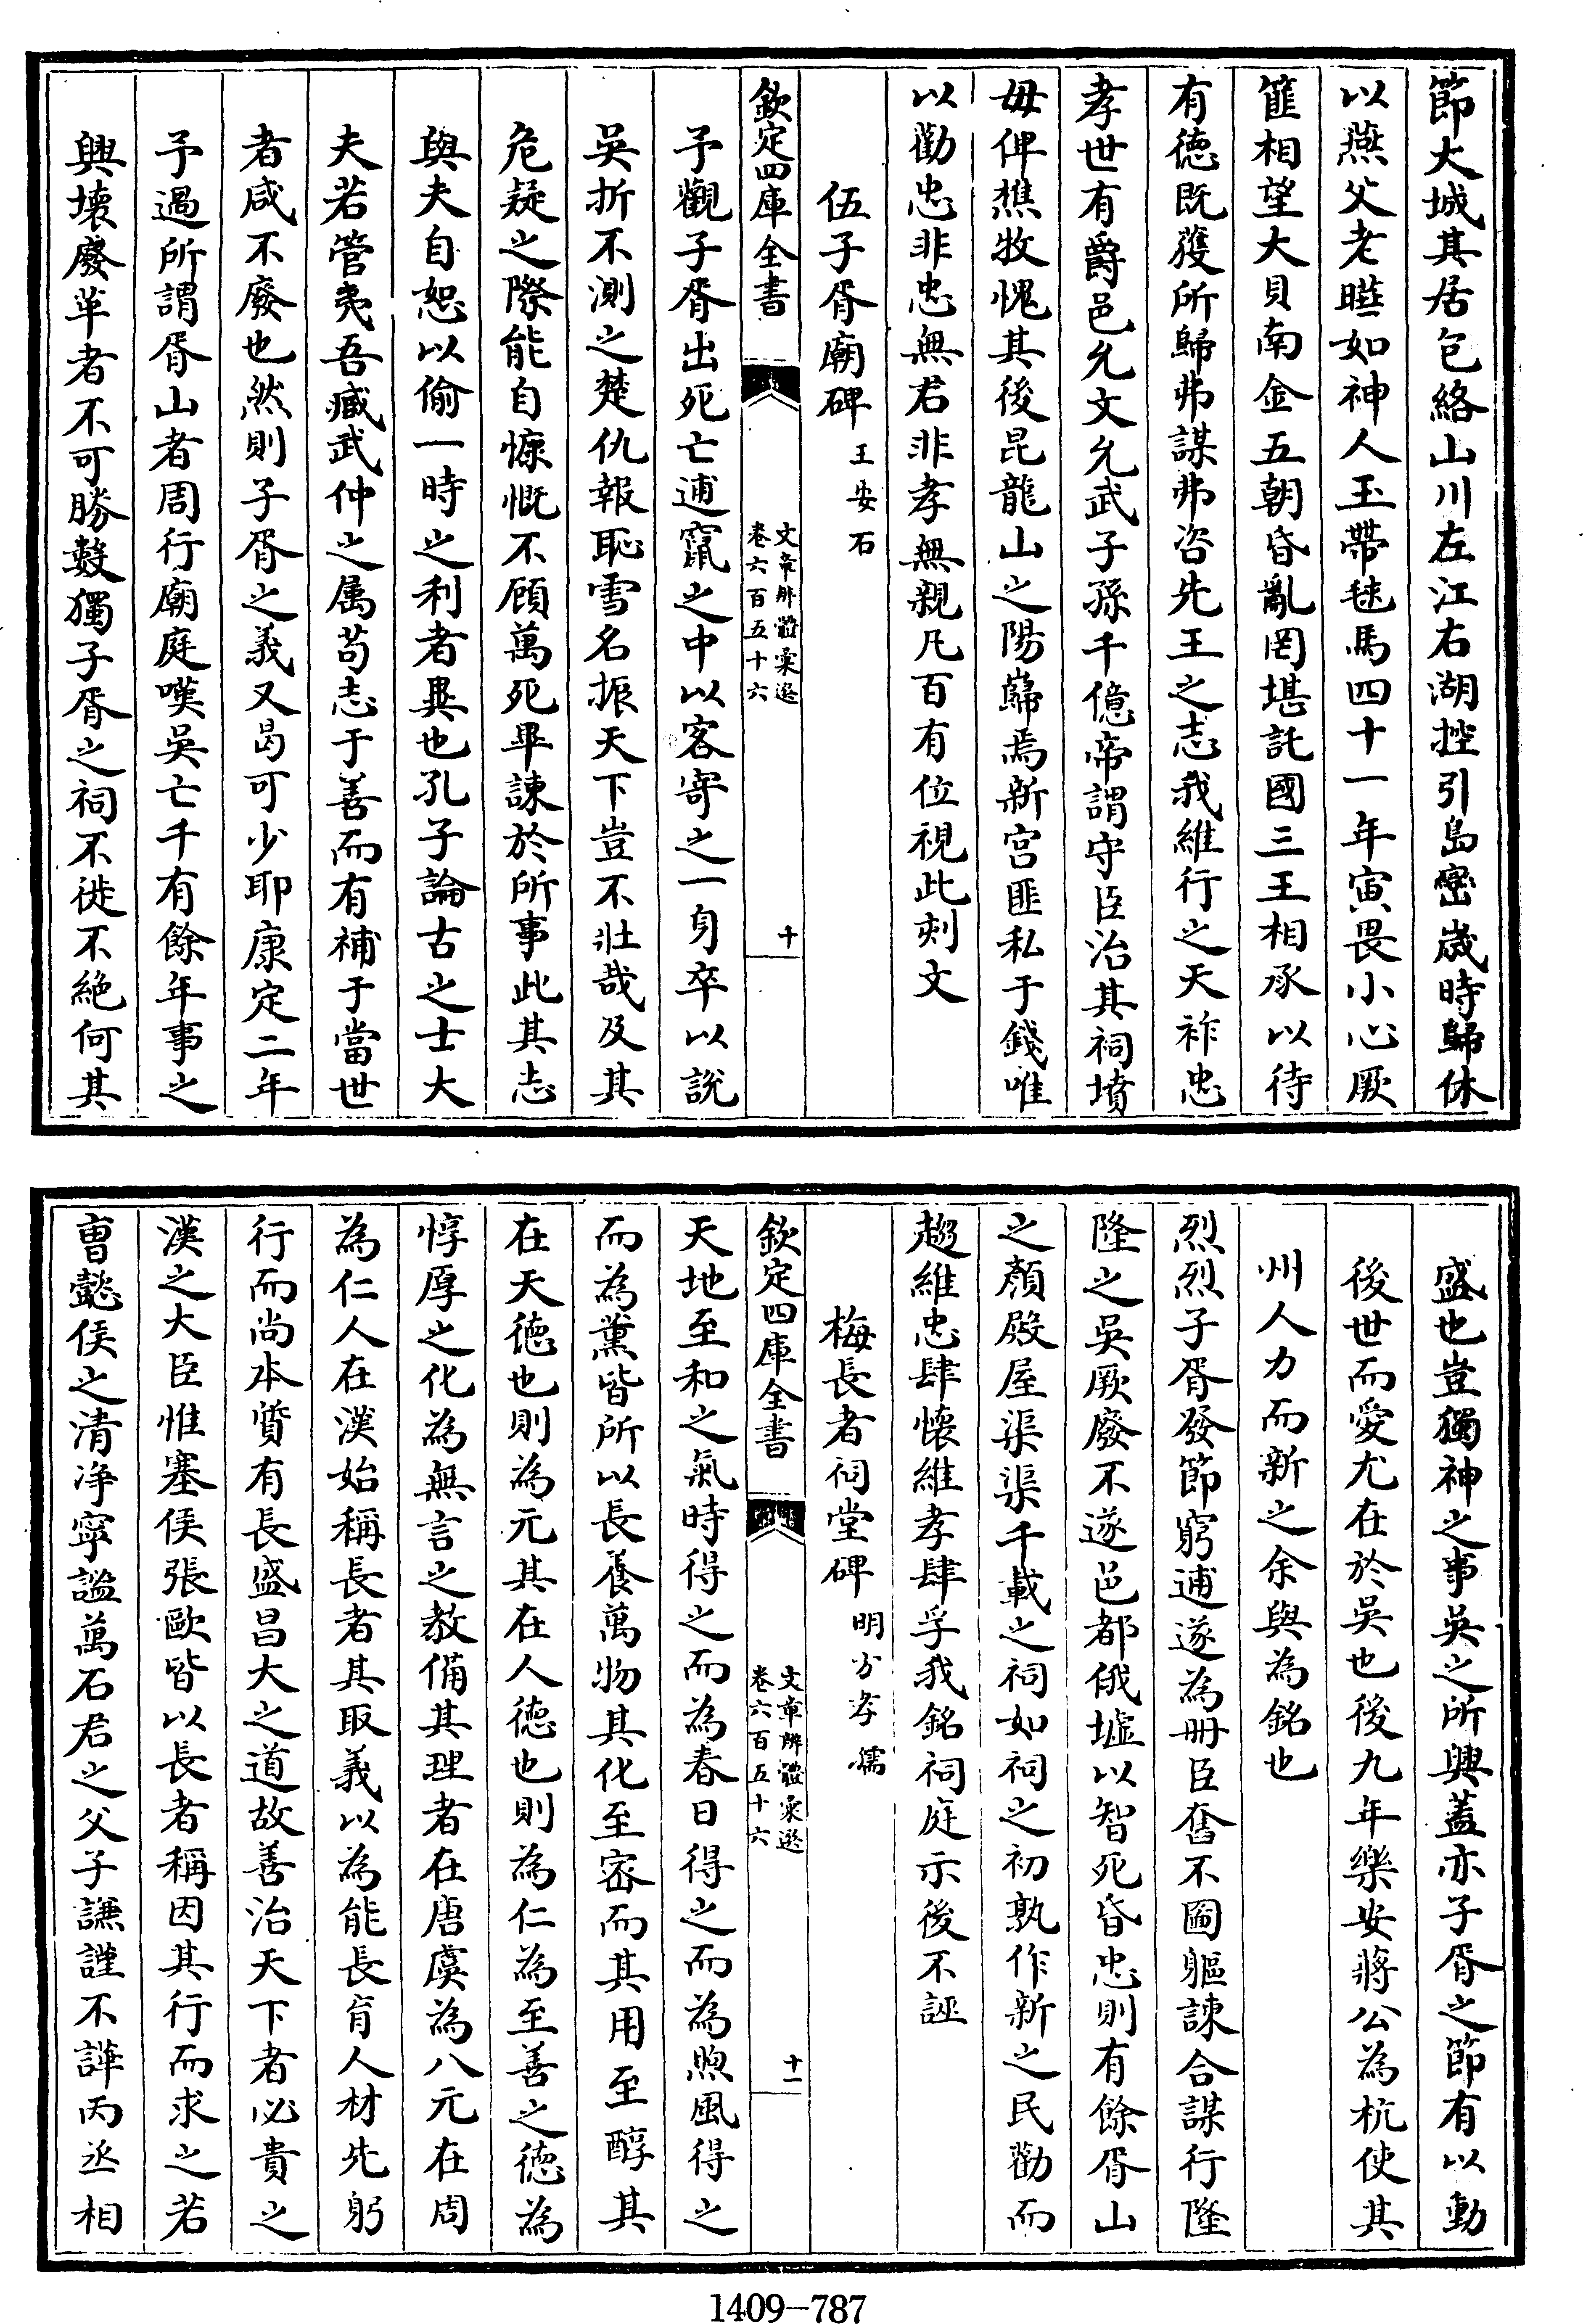 節大城其居包絡山川左江右湖控引島巒歲時歸休
以燕父老曄如神人玉帶毬馬四十一年寅畏小心厥
篚相望大貝南金五朝昏亂罔堪託國三王相承以待
有德既獲所歸弗謀弗咨先王之志我維行之天祚忠
孝世有爵邑允文允武子孫千億帝謂守臣治其祠墳
毋俾樵牧愧其後昆龍山之陽巋焉新宮匪私于錢唯
以勸忠非忠無君非孝無親凡百有位視此刻文
伍子胥廟碑 王安石
欽定四庫全書
文章辨體彙選
卷六百五十六
十
予觀子胥出死亡逋竄之中以客寄之一身卒以說
吳折不測之楚仇報恥雪名振天下豈不壯哉及其
危疑之際能自慷慨不顧萬死畢諫於所事此其志
與夫自恕以偷一時之利者異也孔子論古之士大
夫若管夷吾臧武仲之属苟志于善而有補于當世
者咸不廢也然則子胥之義又曷可少耶康定二年
予過所謂胥山者周行廟庭嘆吳亡千有餘年事之
興壞廢革者不可勝數獨子胥之祠不徙不絕何其
盛也豈獨神之事吳之所興蓋亦子胥之節有以動
後世而愛尤在於吳也後九年樂安蔣公為杭使其
州人力而新之余與為銘也
烈烈子胥發節窮逋遂為冊臣奮不圖軀諫合謀行隆
隆之吳厥廢不遂邑都俄墟以智死昏忠則有餘胥山
之顏殿屋渠渠千載之祠如祠之初孰作新之民勸而
趨維忠肆懷維孝肆孚我銘祠庭示後不誣
梅長者祠堂碑 明方孝孺
欽定四庫全書
文章辨體彙選
卷六百五十六
十一
天地至和之氣時得之而為春日得之而為煦風得之
而為薰皆所以長養萬物其化至密而其用至醇其
在天德也則為元其在人德也則為仁為至善之德為
惇厚之化為無言之教備其理者在唐虞為八元在周
為仁人在漢始稱長者其取義以為能長育人材先躬
行而尚本質有長盛昌大之道故善治天下者必貴之
漢之大臣惟塞侯張歐皆以長者稱因其行而求之若
曹懿侯之清凈寧謐萬石君之父子謙謹不譁丙丞相
1409-787